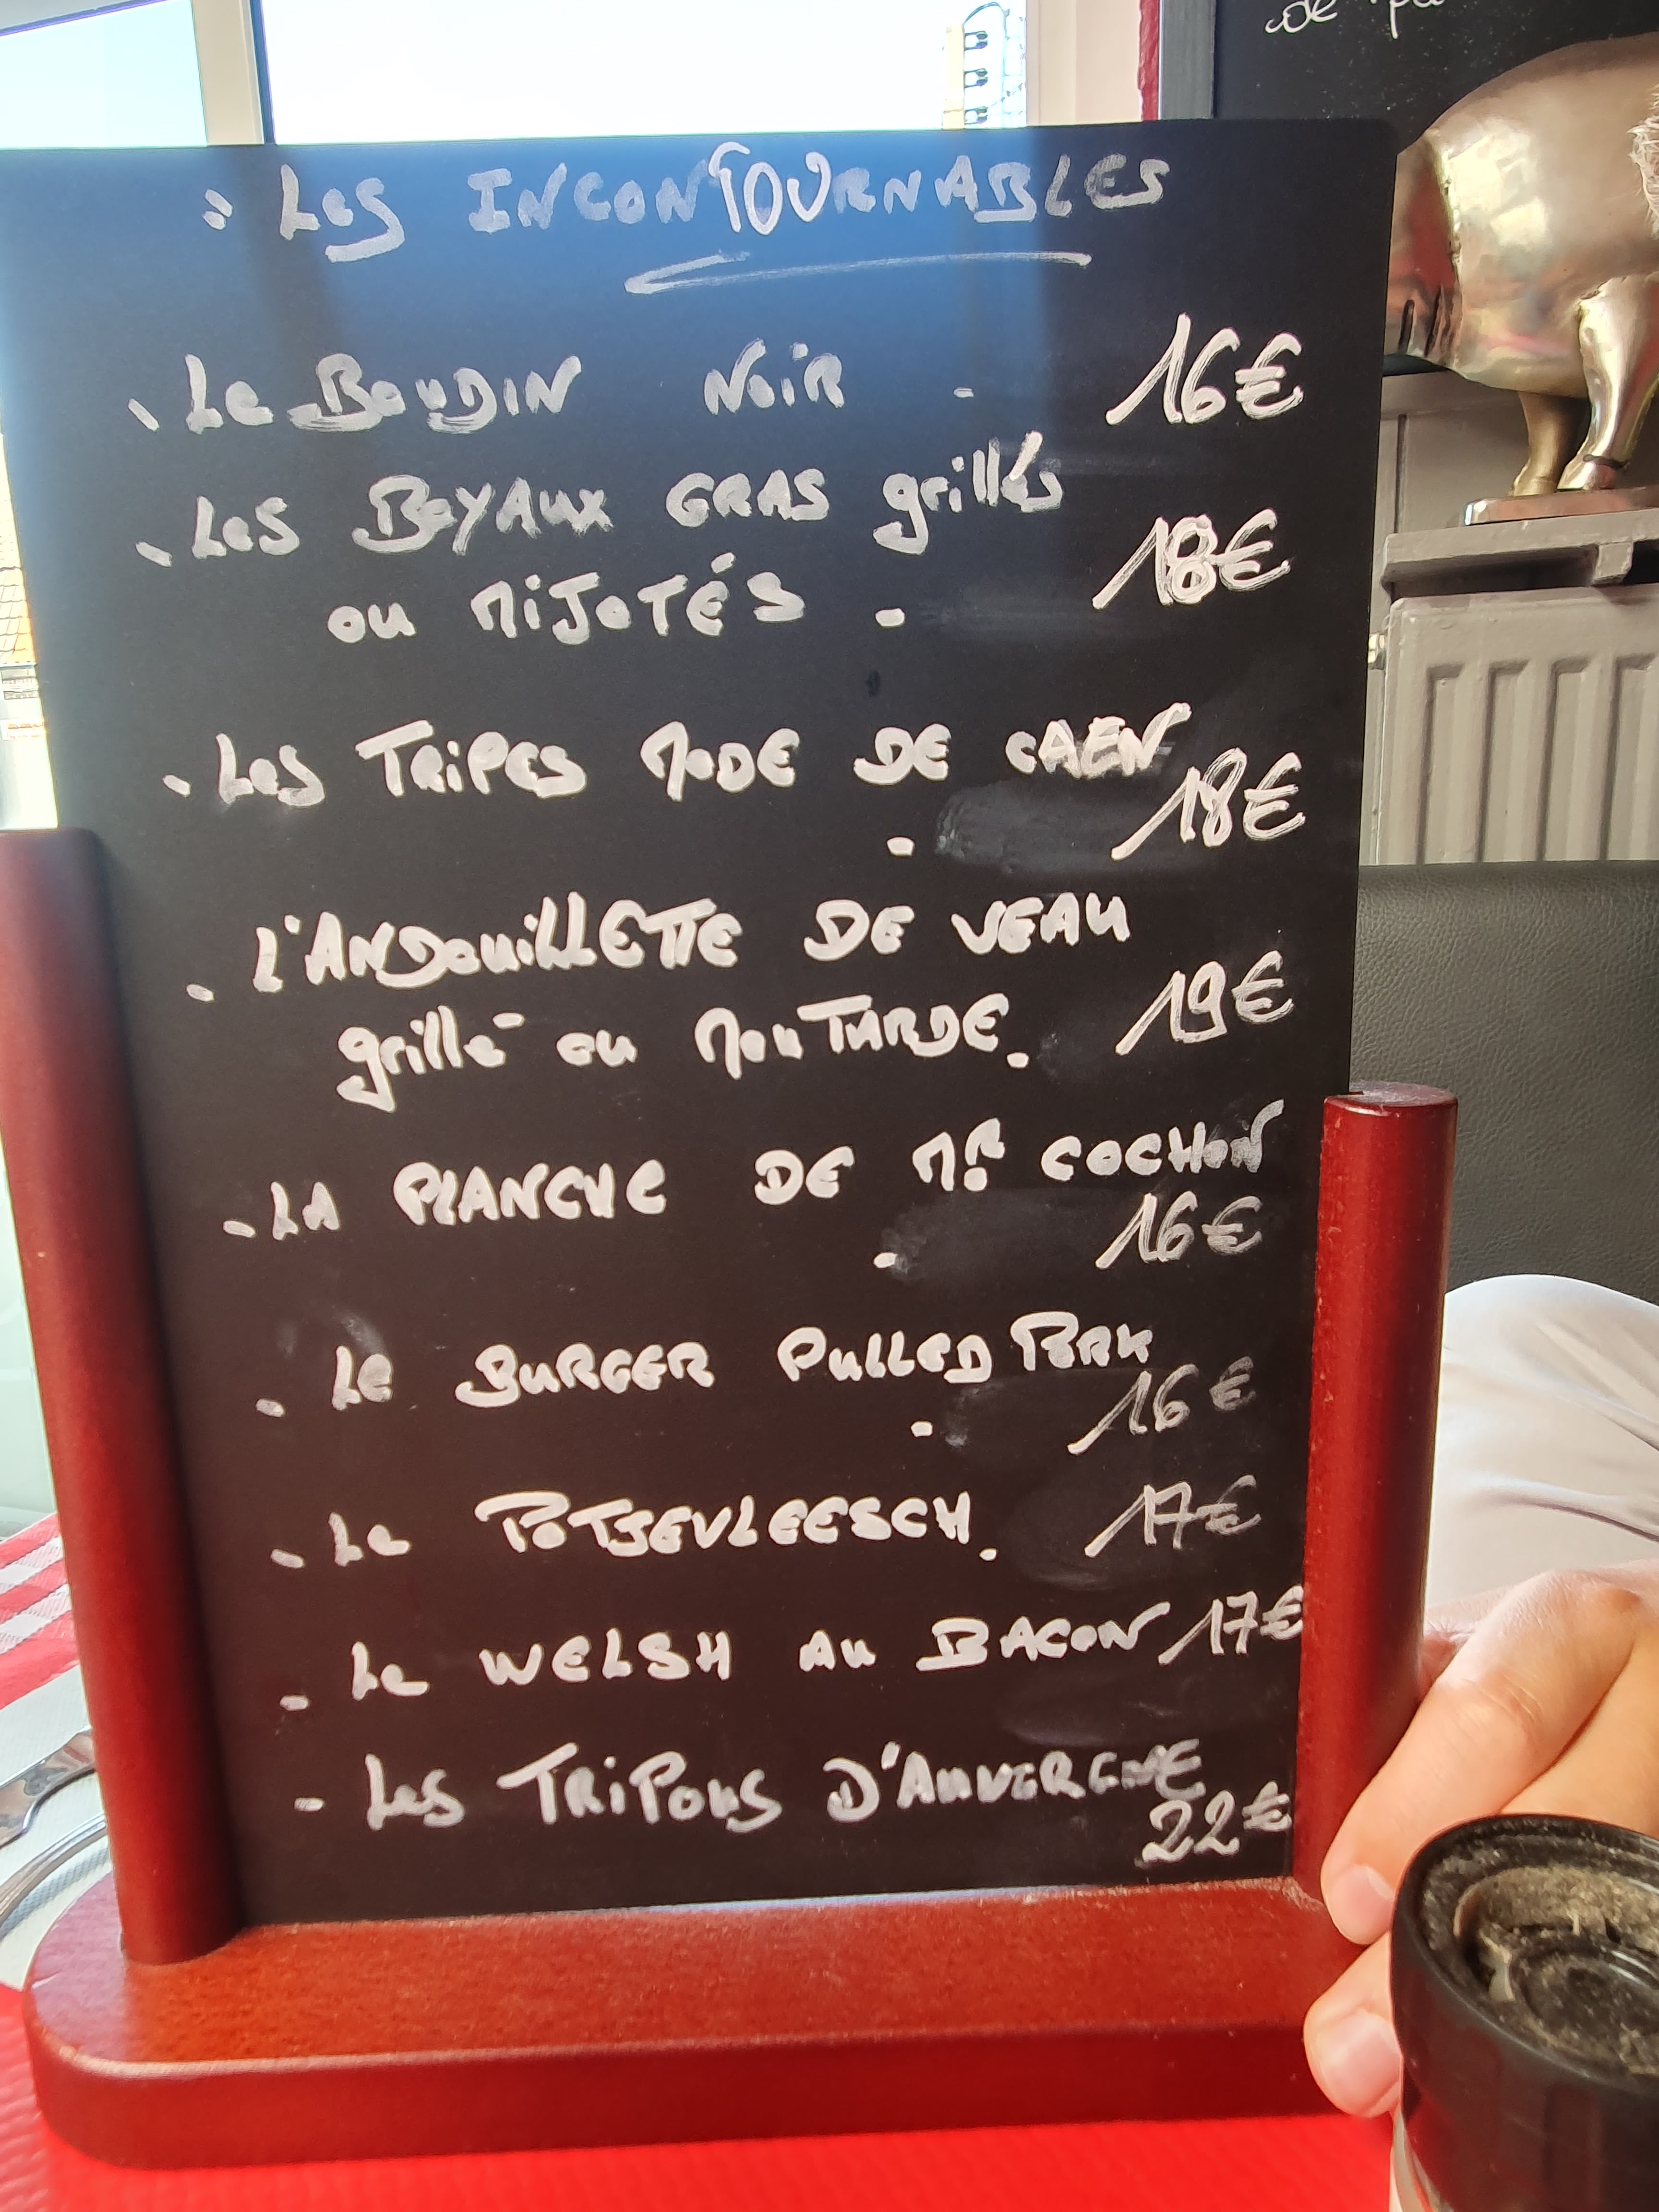 de
: Les INCONTOURNABLES
- Le BOUDIN NOIR - 16€
- Les BOYAUX GRAS grillés
ou MIJOTÉS - 18€
- Les TRIPES MODE DE CAEN
- 18€
- L'ANDOUILLETTE DE VEAU
grillé ou MOUTARDE. 19€
- LA PLANCHE DE Mr COCHON
- 16€
- LE BURGER PULLED PORK
- 16€
- Le POTJEVLEESCH. 17€
- Le WELSH AU BACON 17€
- Les TRIPOUS D'AUVERGNE
22€